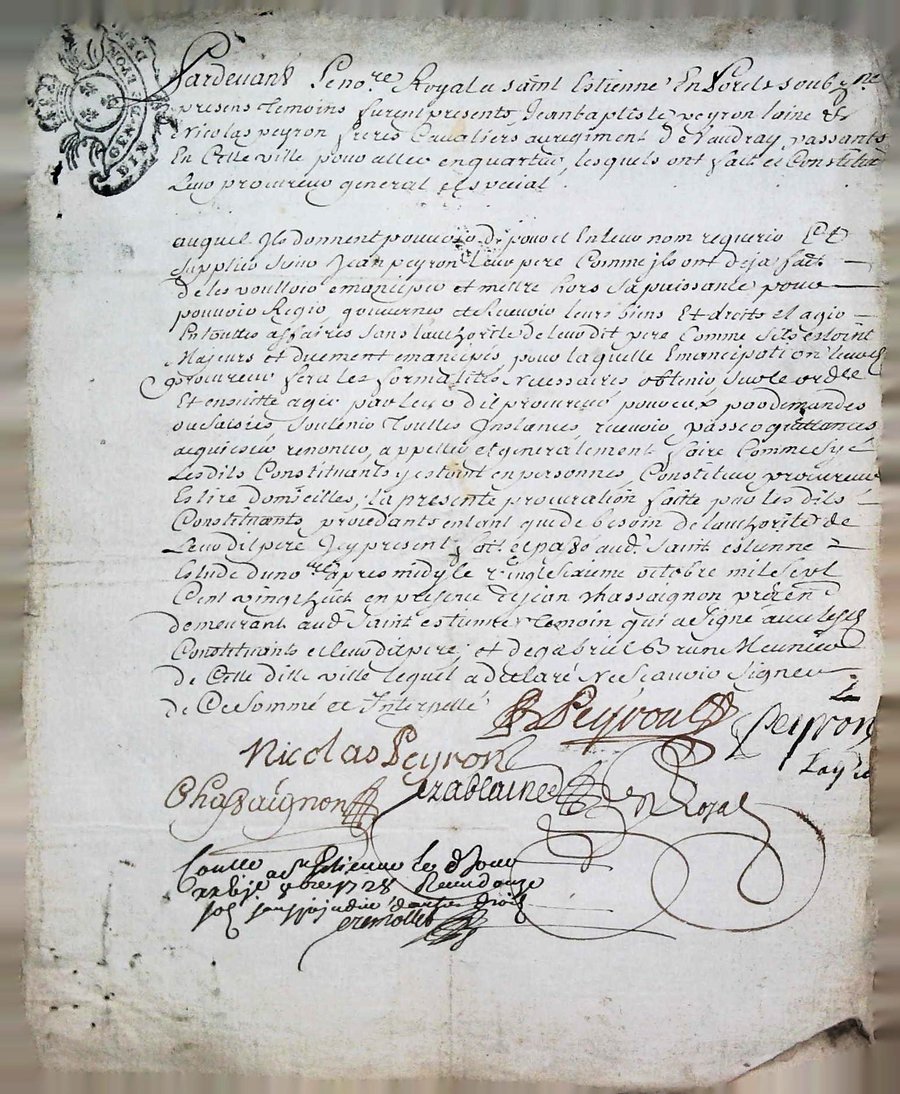 GENERALITE DE LYON
Pardevant Le no.re Royal a saint Estienne En forets soub.né
presens temoins furent presents Jean baptiste peyron laine et
Nicolas peyron freres Cavaliers au regiment de Vaudray, passants
En Cette ville pour aller en quartier, lesquels ont fait et Constitué
Leur procureur general et special
auquel Ils donnent pouvoir de pour et En leur nom requerir Et
supplier sieur Jean peyron leur pere Comme ils ont deja fait
de les voulloir emanciper et mettre hors sa puissante pour
pouvoir Regir, gouverner et Recevoir leurs biens Et droits et agir
En touttes affaires sans lauthorité de leurdit pere Comme sils estoint
Majeurs et duement emancipés, pour laquelle Emancipation leurd.
procureur fera les formalités Necessaires obtenir sur le
Et ensuitte agir par leurdit procureur pour eux par demandes
ou saisies soutenir touttes Instances, recevoir, passer quittances
acquiescer renoncer, appeller et generalement faire Comme sy
Lesdits Constituants y estoint en personnes, Constituer procureur
Eslire domicilles, la presente procuration faitte par les dits
Constituants, procedants entant que de besoin de lauthorité de
Leurdit pere Icy present, fait et passé aud. saint estienne
Estude du no.re apres midy le vingt sixieme octobre mil sept
Cent vingt huit en presence de jean Chassaignon praticien
demeurant aud. saint estienne temoin qui a signé avec lesd.
Constituants et leurdit pere, et de gabriel Brun Meunier
de Cette ditte ville lequel a declaré Ne scavoir signer
de Ce sommé et Interpellé
Peyron Peyron
Nicolas Peyron
Chassaignon n.re Royal
Controllé a St Estienne le d. Jour
8bre 1728 Receu douze
sol sans prejudice dautres droits